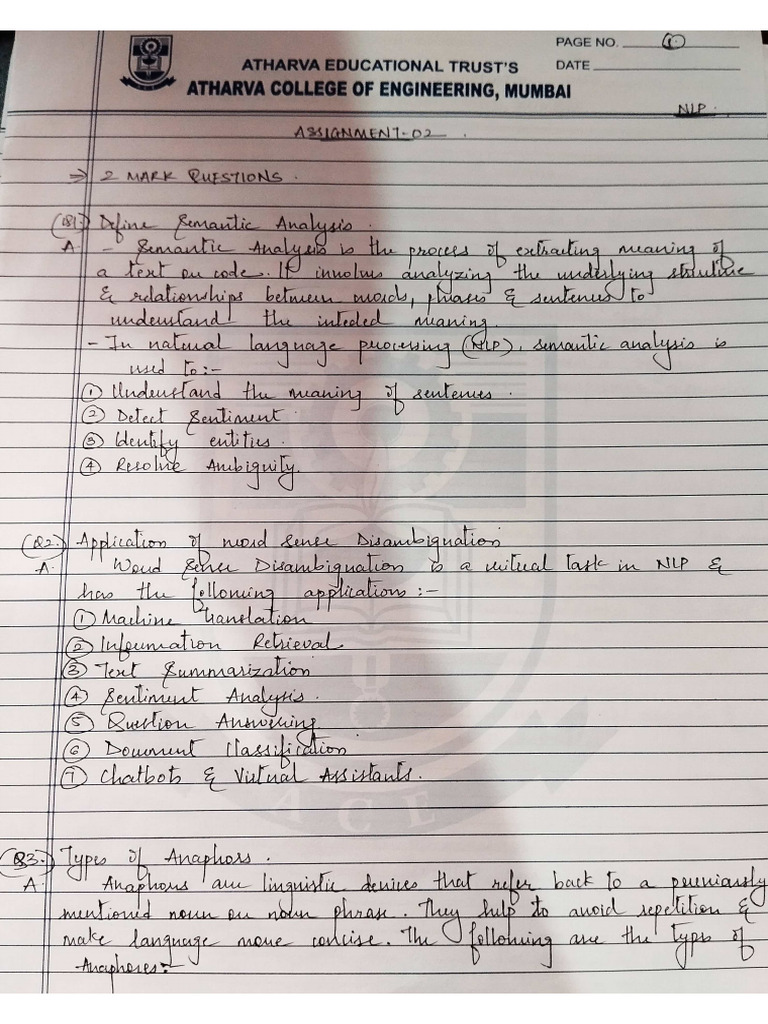 PAGE NO. ①
ATHARVA EDUCATIONAL TRUST'S
DATE
ATHARVA COLLEGE OF ENGINEERING, MUMBAI
NLP.
ASSIGNMENT-02.
⇒ 2 MARK QUESTIONS.
(Q1.) Define Semantic Analysis.
A. - Semantic Analysis is the process of extracting meaning of
a text or code. It involves analyzing the underlying structure
& relationships between words, phrases & sentences to
understand the inteded meaning.
- In natural language processing (NLP), semantic analysis is
used to:-
① Understand the meaning of sentences.
② Detect Sentiment
③ Identify entities.
④ Resolve Ambiguity.
(Q2.) Application of word sense Disambiguation
A. Word Sense Disambiguation is a critical task in NLP &
has the following applications:-
① Machine Translation
② Information Retrieval
③ Text Summarization
④ Sentiment Analysis.
⑤ Question Answering
⑥ Document Classification
⑦ Chatbots & Virtual Assistants.
ACE
(Q3.) Types of Anaphors.
A. Anaphors are linguistic devices that refer back to a previously
mentioned noun or noun phrase. They help to avoid repetition &
make language more concise. The following are the types of
Anaphores:-